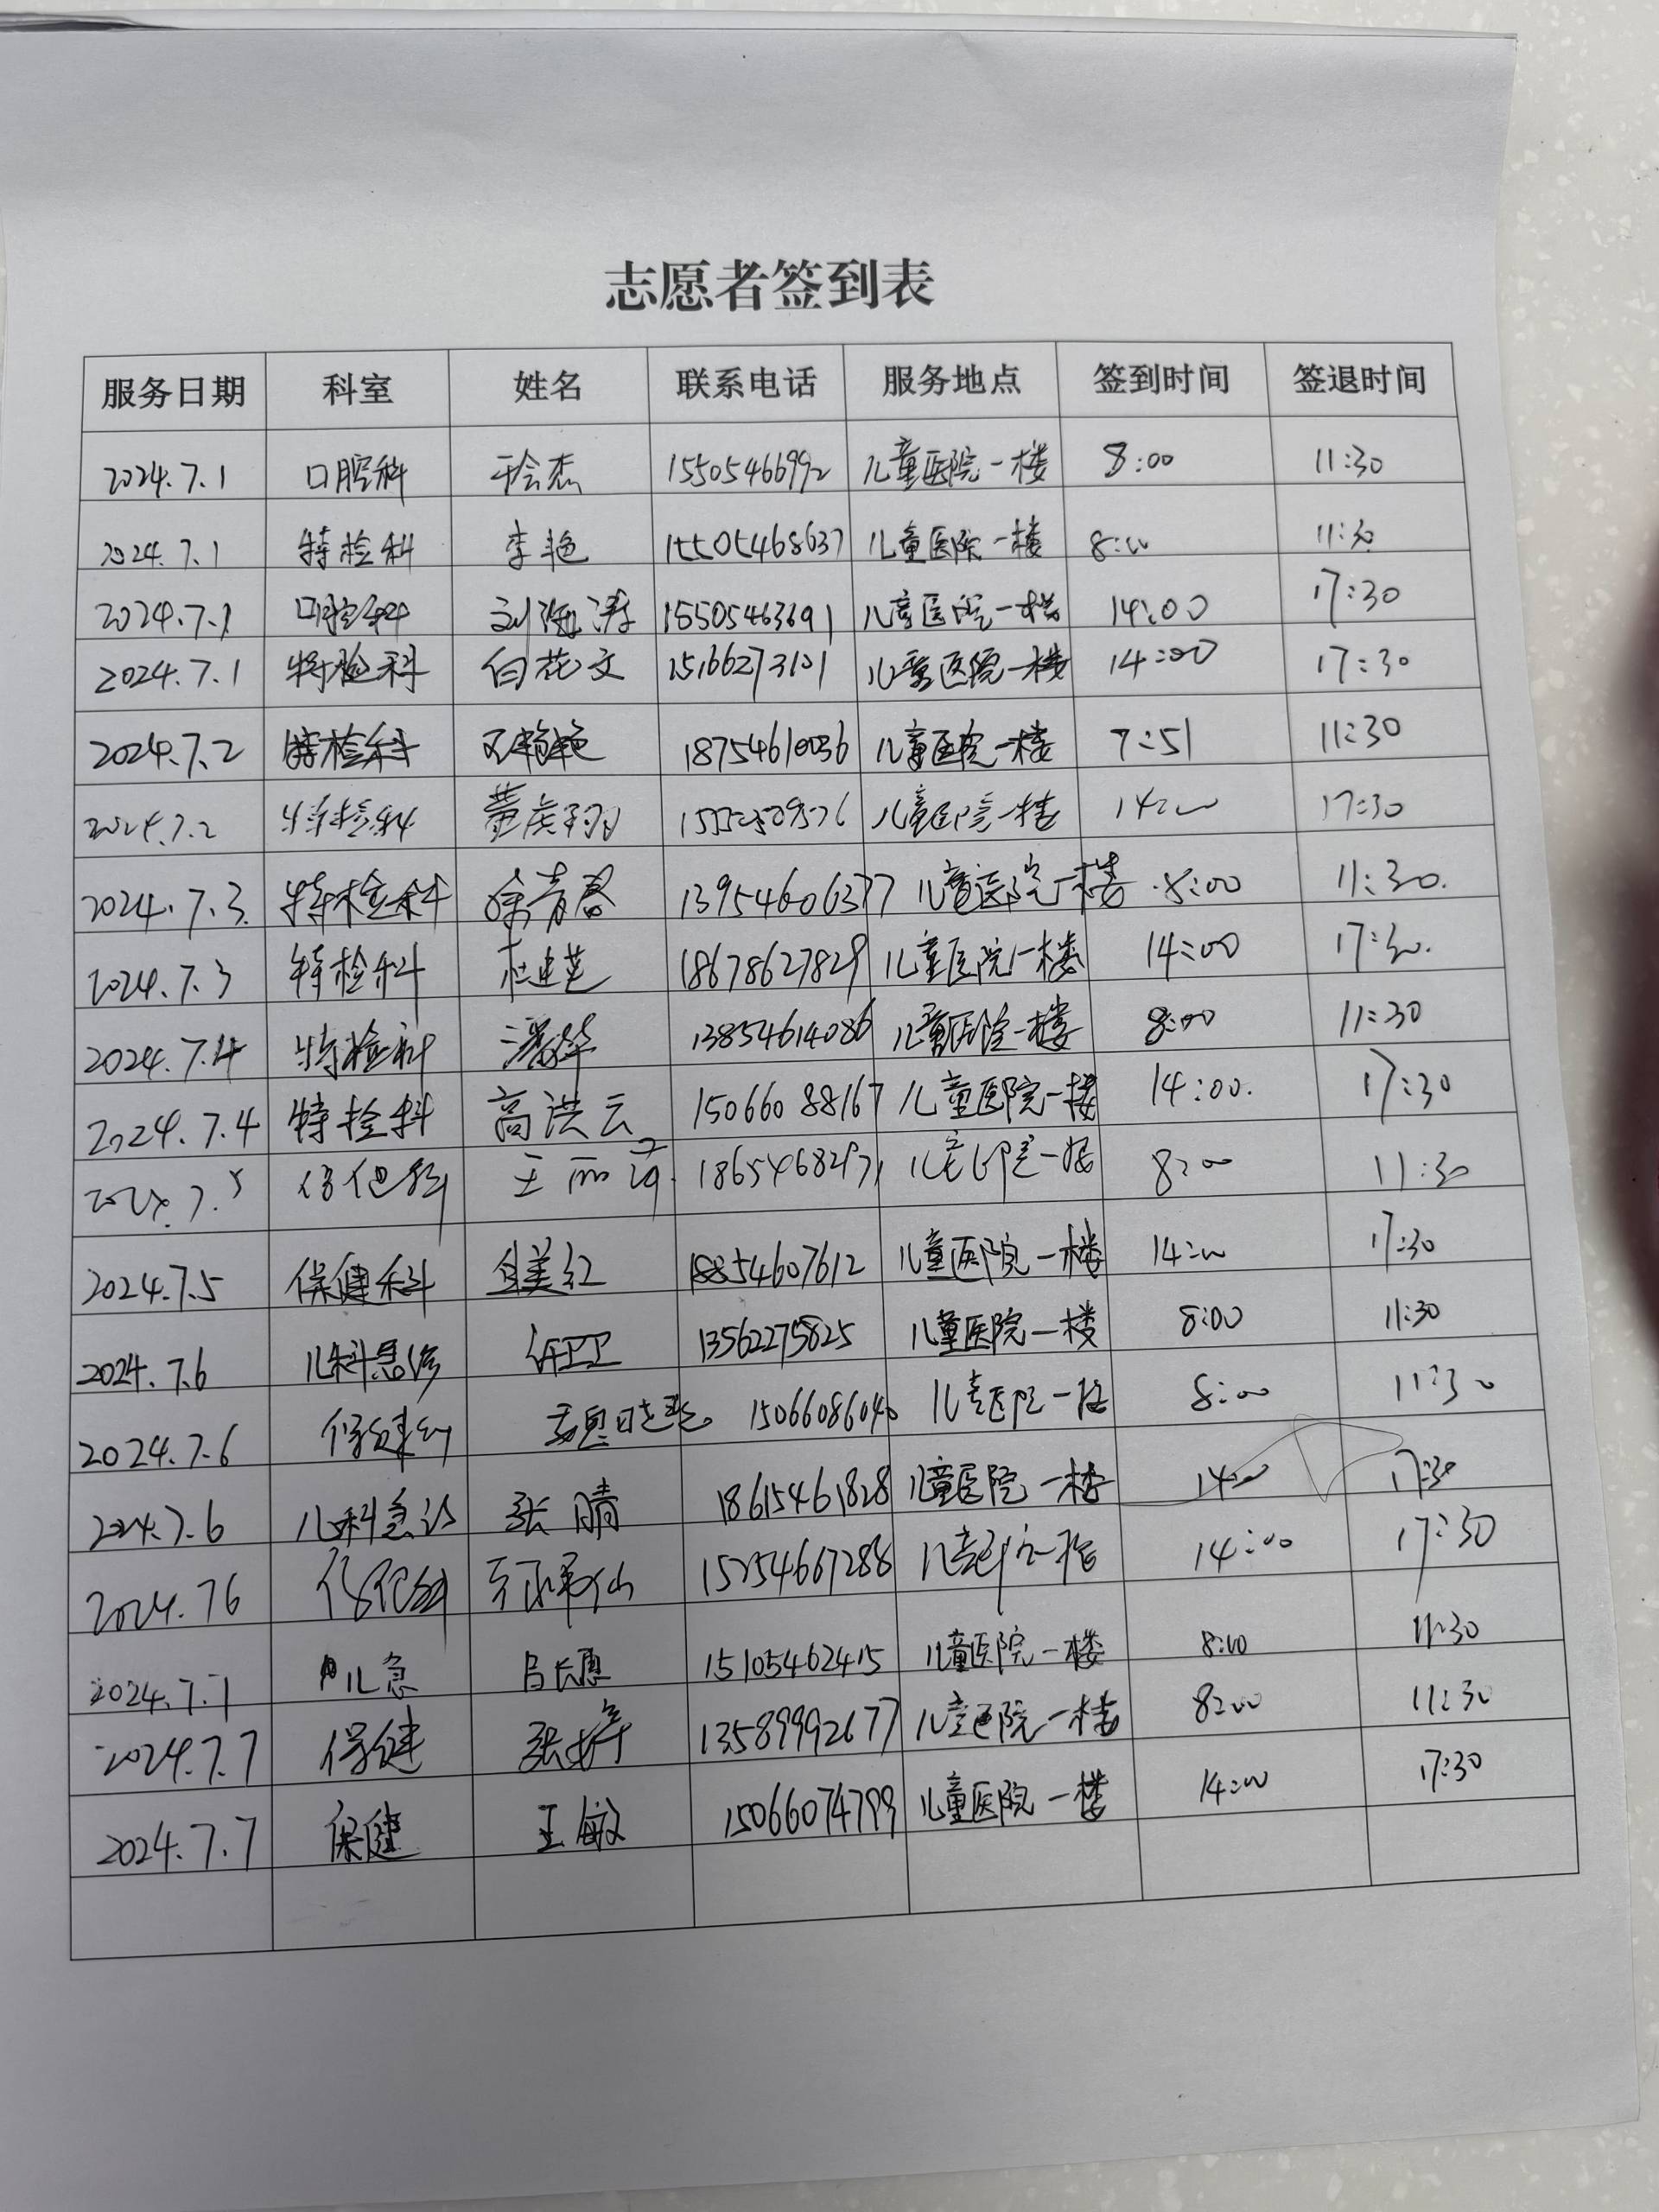 志愿者签到表
服务日期 科室 姓名 联系电话 服务地点 签到时间 签退时间
2024.7.1 口腔科 15505466992 儿童医院一楼 8:00 11:30
2024.7.1 特检科 李艳 15505468637 儿童医院一楼 8:00 11:30
2024.7.1 口腔科 刘海涛 15505463691 儿童医院一楼 14:00 17:30
2024.7.1 特检科 白花文 15166273101 儿童医院一楼 14:00 17:30
2024.7.2 特检科 18754610036 儿童医院一楼 7:51 11:30
2024.7.2 特检科 儿童医院一楼 14:00 17:30
2024.7.3 特检科 徐青春 13954606377 儿童医院一楼 8:00 11:30.
2024.7.3 特检科 18678627829 儿童医院一楼 14:00 17:30.
2024.7.4 特检科 13854614086 儿童医院一楼 8:00 11:30
2024.7.4 特检科 高洪云 15066088167 儿童医院一楼 14:00. 17:30
2024.7.5 保健科 儿童医院一楼 8:00 11:30
2024.7.5 保健科 18854607612 儿童医院一楼 14:00 17:30
2024.7.6 儿科急诊 许卫卫 13562275825 儿童医院一楼 8:00 11:30
2024.7.6 保健科 15066086040 儿童医院一楼 8:00 11:30
2024.7.6 儿科急诊 张晴 18615461828 儿童医院一楼 14:00 17:30
2024.7.6 保健科 15254667288 儿童医院一楼 14:00 17:30
2024.7.7 儿急 15105462415 儿童医院一楼 8:00 11:30
2024.7.7 保健 张婷 13589992677 儿童医院一楼 8:00 11:30
2024.7.7 保健 王敏 15066074799 儿童医院一楼 14:00 17:30